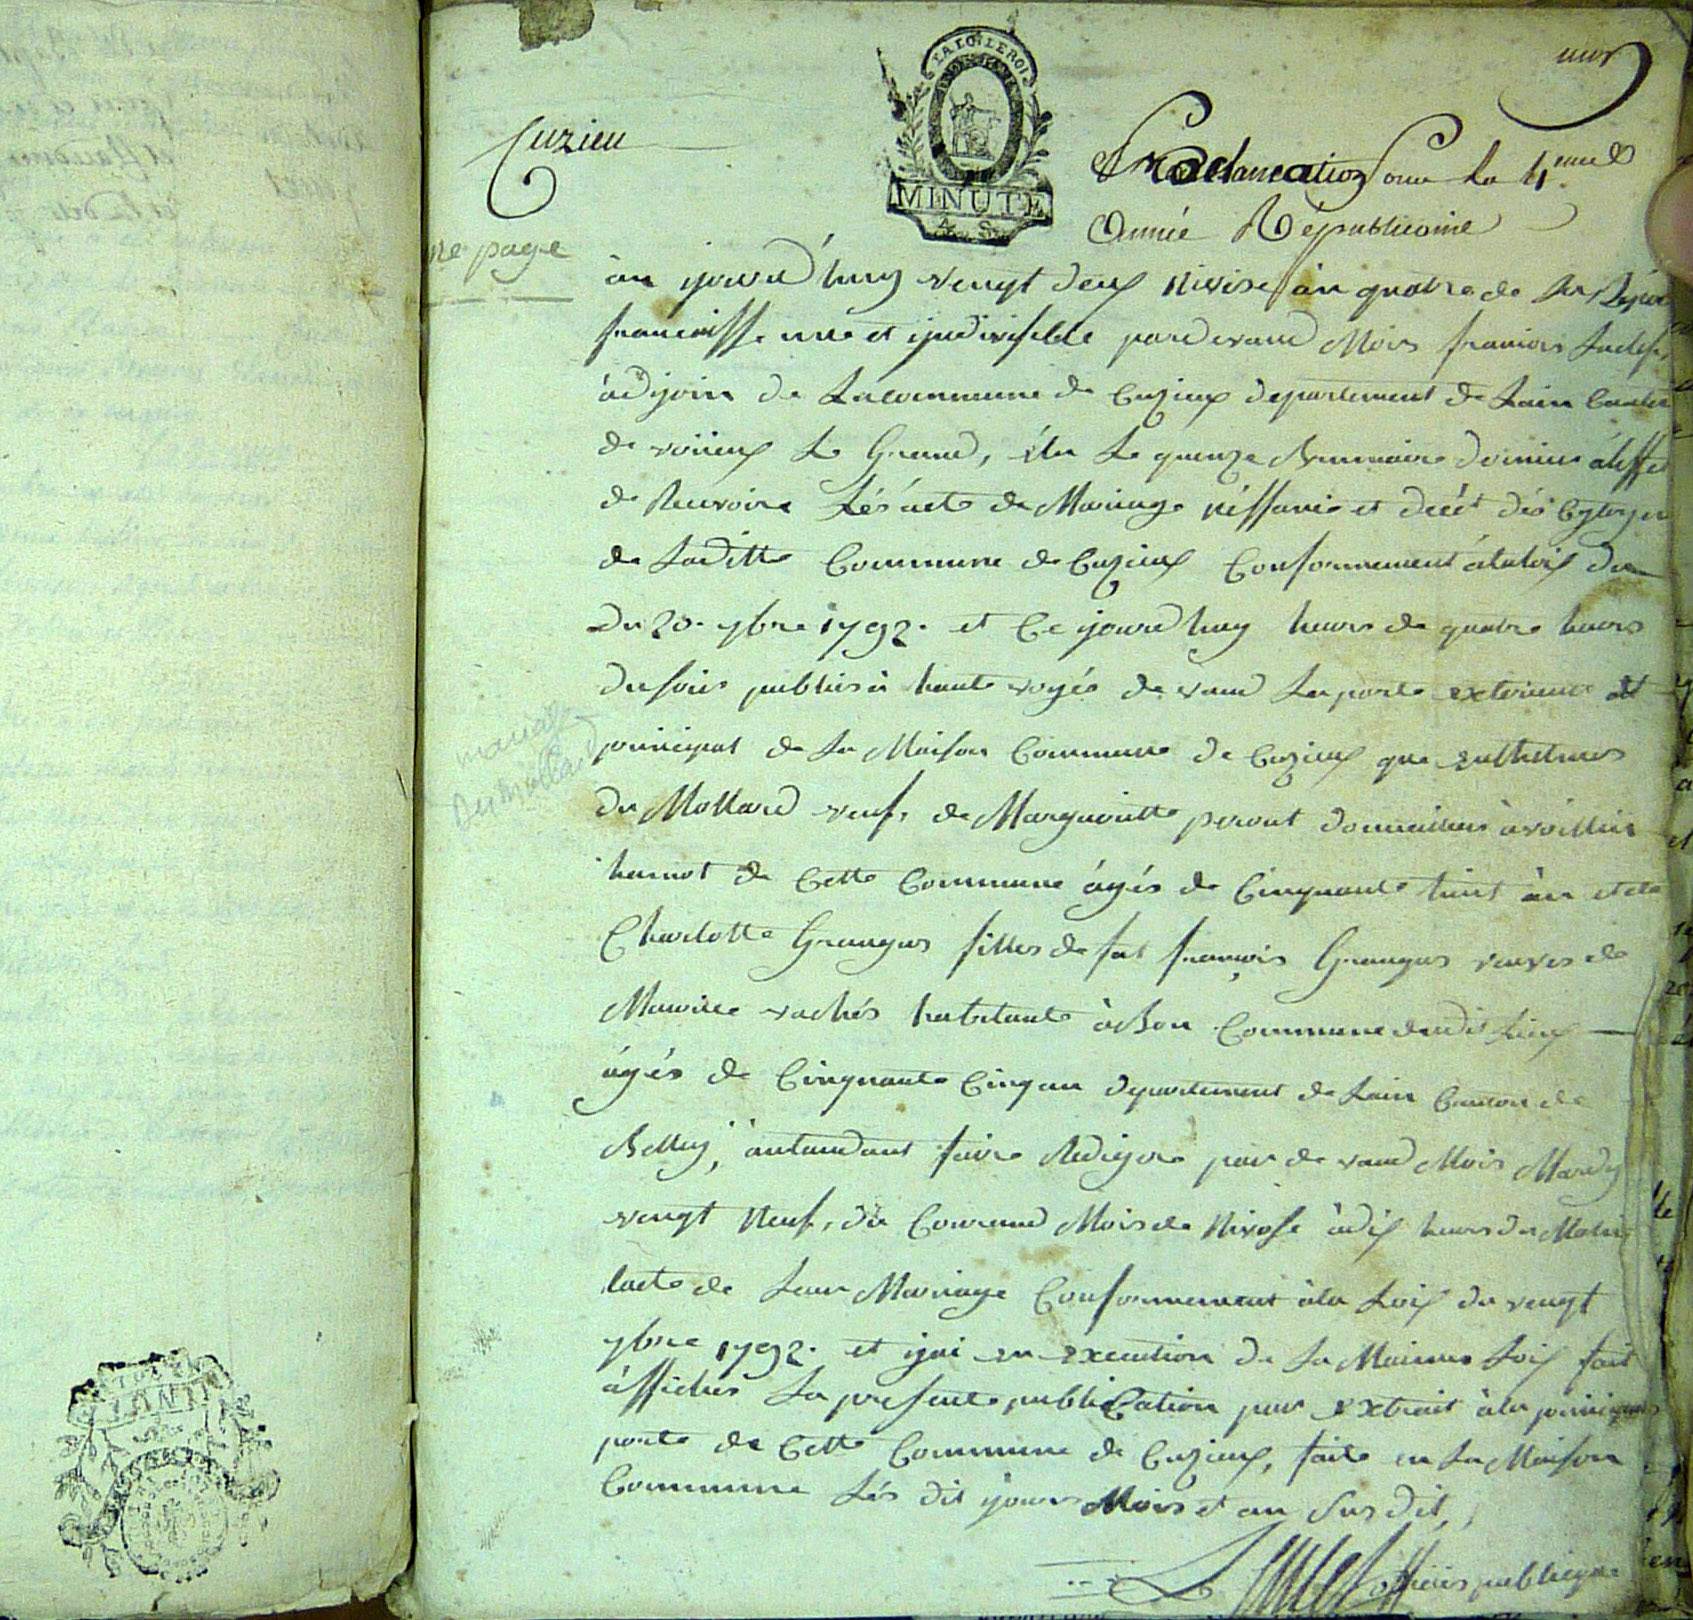 LA LOI LE ROI
MINUTE
4 S
Cuzieu
Proclamation pour La 4.eme
Année Républicaine
1re page
àu jourd'huy vengt deux Nivise àn quatre de La Répu
francaisse une et yndivisible pardevand Mois francois
àdjoin de La commune de Cuzieux departement de Lain Canton
de virieux Le Grand, élu Le quenze Brumaire dernier àleffet
de Recevoire Lés acte de Mariage néssance et decét dés Cytoyen
de Laditte Commune de Cuzieux Conformement àlaloix du
Du 20. 7bre 1792. et Ce jourd'huy heure de quatre heurs
du soire publiés à haute voyés devand La porte exterieure et
principal de La Maison Commune de Cuzieux que enthelmes
mariage
du Mollard
du Mollard veuf, de Margueritte peront domicilies àvoillien
hamot de Cette Commune àgés de Cinquante huit àn et de
Charlotte Grangus filles de fut françois Grangus veuves de
Maurice vachés habitante àBon Commune dudit Lieux
àgés de Cinquante Cinq an departement de Lain Canton de
Belley, àntandant faire Redigere par devand Mois Mardy
vengt Neuf, du Courand Mois de Nivose àdix heurs du Matin
lacte de Leur Mariage Conformement àla Loix du vengt
7bre 1792. et ijai en execution de La Maimes Loix fait
àffiches La presente publication par extrait àla principals
porte de Cette Commune de Cuzieux, faite en La Maison
Commune Lés dit jours Mois et an Sus dit,
officiés publique